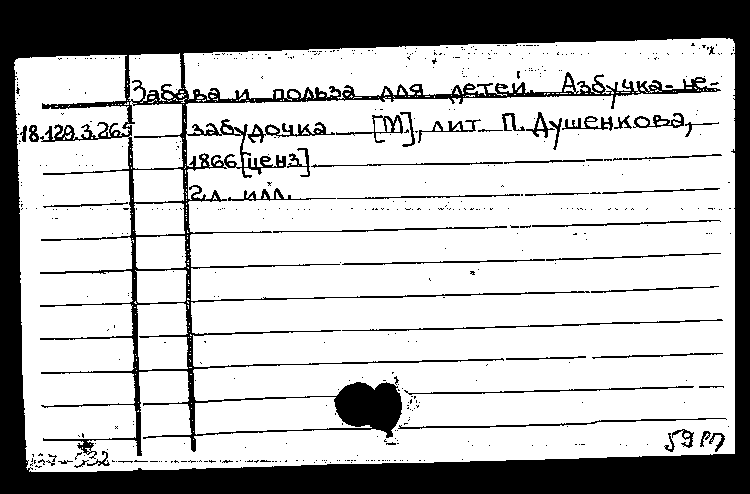 Забава и польза для детей. Азбучка-не-
18.129.3.265 забудочка [М], лит. П. Душенкова,
1866 [ценз]
2 л. илл.
59 РП